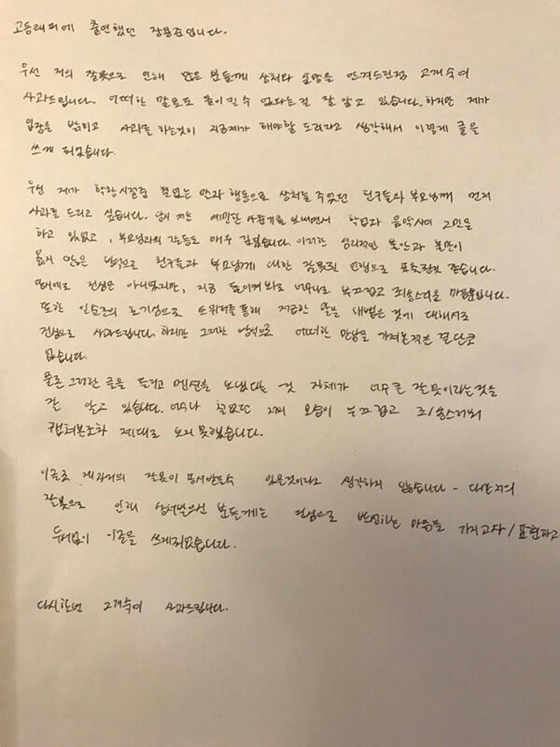 고등래퍼에 출연했던 장용준입니다.
우선 저의 잘못으로 인해 많은 분들께 상처와 실망을 안겨드린점 고개숙여
사과드립니다. 어떠한 말로도 용서될 수 없다는걸 잘 알고 있습니다. 하지만 제가
입장을 밝히고 사과를 하는것이 지금제가 해야할 도리라고 생각해서 이렇게 글을
쓰게 되었습니다.
우선 제가 학창시절중 철없는 말과 행동으로 상처를 주었던 친구들과 부모님께 먼저
사과를 드리고 싶습니다. 당시 저는 예민한 사춘기를 보내면서 학업과 음악사이 고민을
하고 있었고, 부모님과의 갈등도 매우 깊었습니다. 이러한 심리적인 불안과 불만이
옳지 않은 방식으로 친구들과 부모님께 대한 잘못된 언행으로 표출된것 같습니다.
절대로 진심은 아니었지만, 지금 돌이켜봐도 너무나도 부끄럽고 죄송스러울 따름입니다.
또한 일순간의 호기심으로 트위터를 통해 저급한 말을 내뱉은 것에 대해서도
진심으로 사과드립니다. 하지만 그러한 방식으로 어떠한 만남을 가져본적은 결단코
없습니다.
물론 그러한 글을 쓰고 멘션을 보냈다는 것 자체가 너무큰 잘못이라는것을
잘 알고 있습니다. 너무나 철없던 제 모습이 부끄럽고 죄송스러워
캡쳐본조차 제대로 보지 못했습니다.
이글로 제과거의 잘못이 용서받을수 있을것이라고 생각하지 않습니다 - 다만 저의
잘못으로 인해 상처받으신 분들께는 진심으로 반성하는 마음을 가지고 표현하고
두서없이 이글을 쓰게되었습니다.
다시한번 고개숙여 사과드립니다.